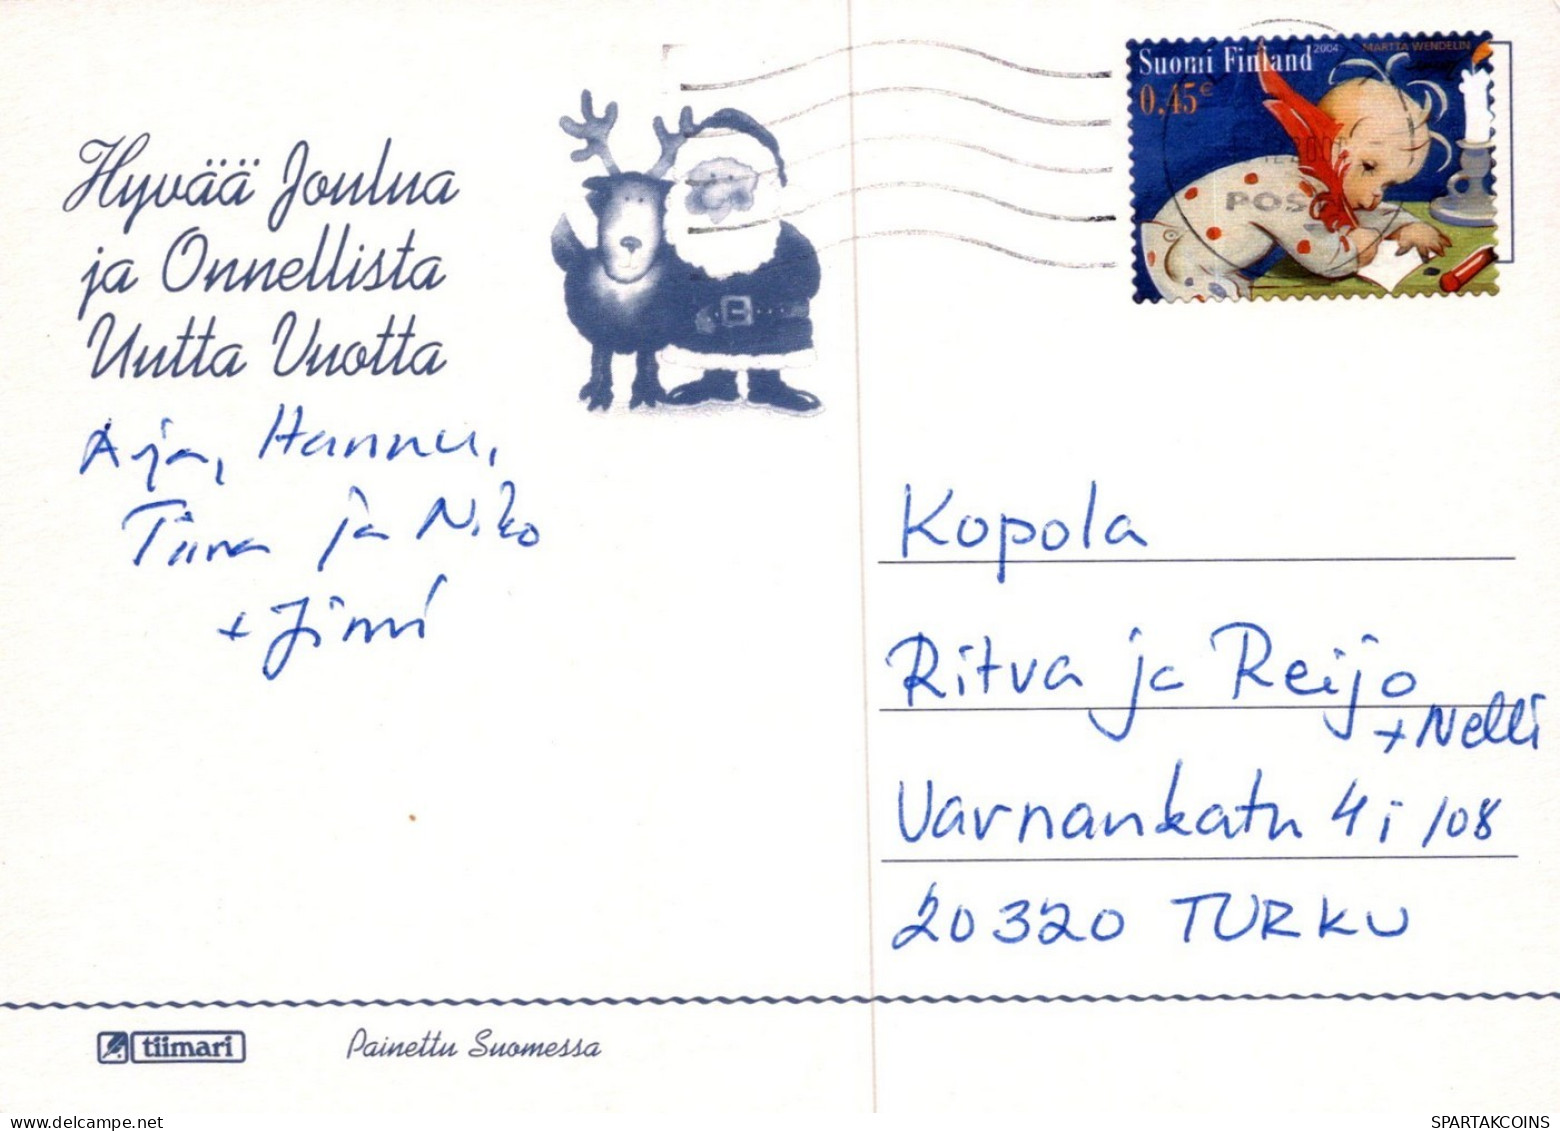 Suomi Finland 2004 MARTTA WENDELIN
0,45€
POST
Hyvää Joulua
ja Onnellista
Uutta Vuotta
Arja, Hannu,
Tiina ja Niko
+ Jimi
Kopola
Ritva ja Reijo
+ Nelli
Varnankatu 4 i 108
20320 TURKU
tiimari Painettu Suomessa
SPARTAKCOINS
www.delcampe.net